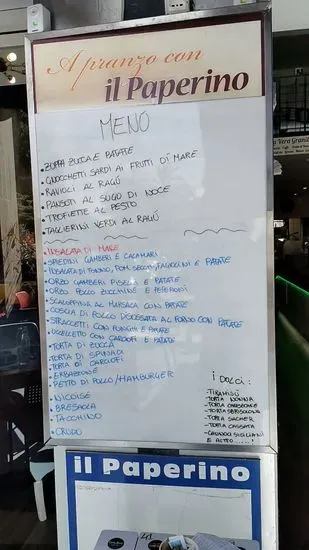 A pranzo con
il Paperino
MENÙ
• ZUPPA ZUCCA E PATATE
• GNOCCHETTI SARDI AI FRUTTI DI MARE
• RAVIOLI AL RAGÙ
• PANSOTI AL SUGO DI NOCE
• TROFIETTE AL PESTO
• TAGLIERINI VERDI AL RAGÙ
• INSALATA DI MARE
• SPIEDINI GAMBERI E CALAMARI
• INSALATA DI TONNO, POM. SECCHI, FAGIOLINI E PATATE
• ORZO GAMBERI PISELLI E PATATE
• ORZO POLLO ZUCCHINE E PEPERONI
• SCALOPPINA AL MARSALA CON PATATE
• COSCIA DI POLLO DISOSSATA AL FORNO CON PATATE
• STRACCETTI CON FUNGHI E PATATE
• UCCELLETTO CON CARCIOFI E PATATE
• TORTA DI ZUCCA
• TORTA DI SPINACI
• TORTA DI CARCIOFI
• ERBAZZONE
• PETTO DI POLLO/HAMBURGER
• NICOISE
• BRESAOLA
• TACCHINO
• CRUDO
I DOLCI:
- TIRAMISÙ
- TORTA NONNA
- TORTA SBRISOLONA
- TORTA SACHER
- TORTA CASSATA
- CANNOLI SICILIANI
E ALTRO.....!
il Paperino